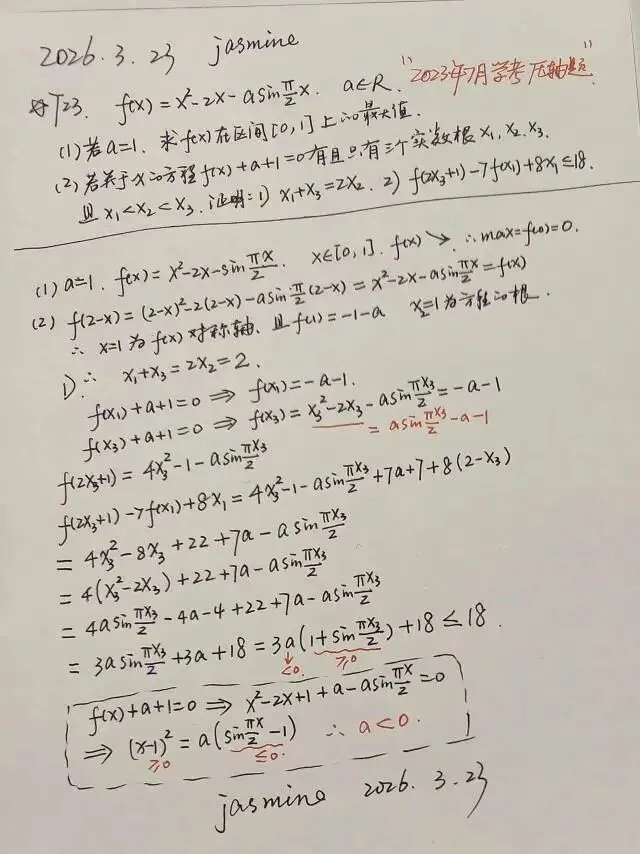 2026.3.23 jasmine
T23. f(x)=x²-2x-asin π/2 x. a∈R. "2023年7月学考压轴题"
(1)若a=1. 求f(x)在区间[0,1]上的最大值.
(2)若关于x的方程f(x)+a+1=0有且只有三个实数根x₁,x₂,x₃.
且x₁<x₂<x₃. 证明:1) x₁+x₃=2x₂. 2) f(2x₃+1)-7f(x₁)+8x₁≤18.
(1) a=1. f(x)=x²-2x-sin πx/2. x∈[0,1]. f(x)↘. ∴max=f(0)=0.
(2) f(2-x)=(2-x)²-2(2-x)-asin π/2(2-x)=x²-2x-asin πx/2=f(x)
∴ x=1为f(x)对称轴. 且f(1)=-1-a x₂=1为方程的根.
1) ∴ x₁+x₃=2x₂=2.
f(x₁)+a+1=0 ⇒ f(x₁)=-a-1.
f(x₃)+a+1=0 ⇒ f(x₃)=x₃²-2x₃-asin πx₃/2=-a-1
=asin πx₃/2-a-1
f(2x₃+1)=4x₃²-1-asin πx₃/2
f(2x₃+1)-7f(x₁)+8x₁=4x₃²-1-asin πx₃/2+7a+7+8(2-x₃)
=4x₃²-8x₃+22+7a-asin πx₃/2
=4(x₃²-2x₃)+22+7a-asin πx₃/2
=4asin πx₃/2-4a-4+22+7a-asin πx₃/2
=3asin πx₃/2+3a+18=3a(1+sin πx₃/2)+18≤18.
<0. ≥0
f(x)+a+1=0 ⇒ x²-2x+1+a-asin πx/2=0
⇒ (x-1)²=a(sin πx/2-1) ∴ a<0.
≥0 ≤0.
jasmine 2026.3.23